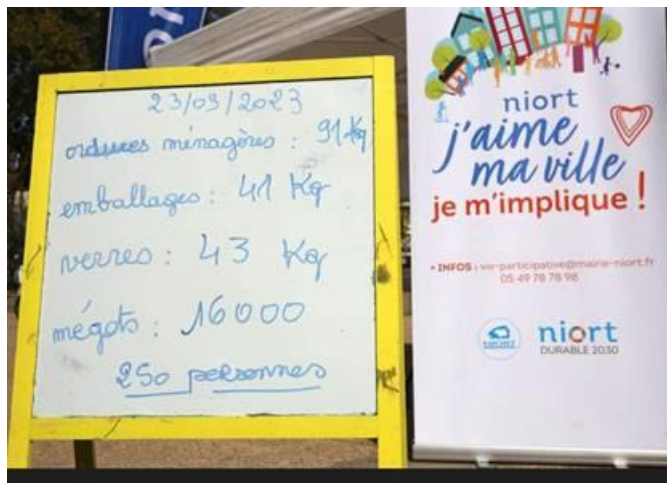 23/09/2023
ordures ménagères : 91 kg
emballages : 41 Kg
verres : 43 Kg
mégots : 16000
250 personnes
niort
j'aime
ma ville
je m'implique !
• INFOS : vie-participative@mairie-niort.fr
05 49 78 78 98
niort
DURABLE 2030